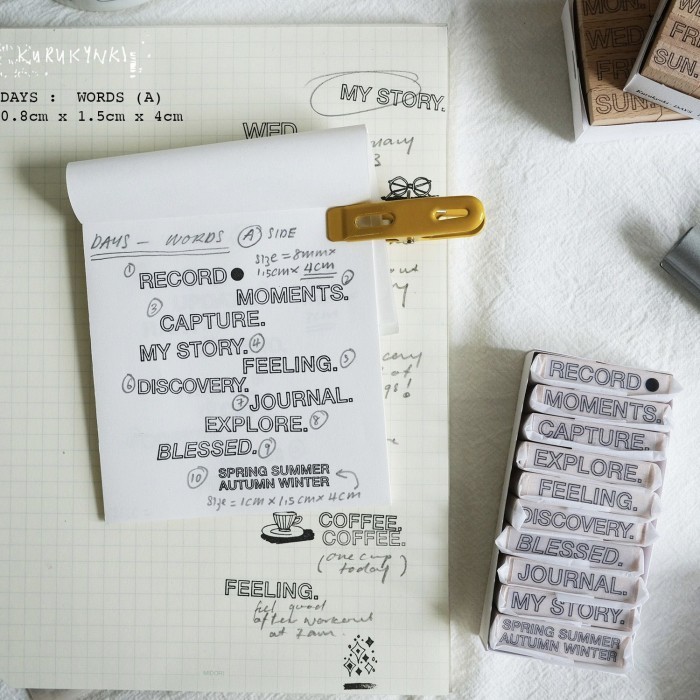 KURUKYNKI
DAYS : WORDS (A)
0.8cm x 1.5cm x 4cm
MY STORY.
WED
DAYS — WORDS Ⓐ SIDE
size = 8mm x
1.5cm x 4cm
① RECORD ●
MOMENTS. ②
③ CAPTURE.
MY STORY. ④
FEELING. ⑤
⑥ DISCOVERY.
⑦ JOURNAL.
EXPLORE. ⑧
BLESSED. ⑨
⑩ SPRING SUMMER
AUTUMN WINTER
size = 1cm x 1.5cm x 4cm
COFFEE,
COFFEE.
(one cup
today)
FEELING.
feel good
after workout
at 7am.
MIDORI
MON.
WED
FRI
SUN.
WE
FR
SUN.
RECORD ●
MOMENTS.
CAPTURE.
EXPLORE.
FEELING.
DISCOVERY.
BLESSED.
JOURNAL.
MY STORY.
SPRING SUMMER
AUTUMN WINTER